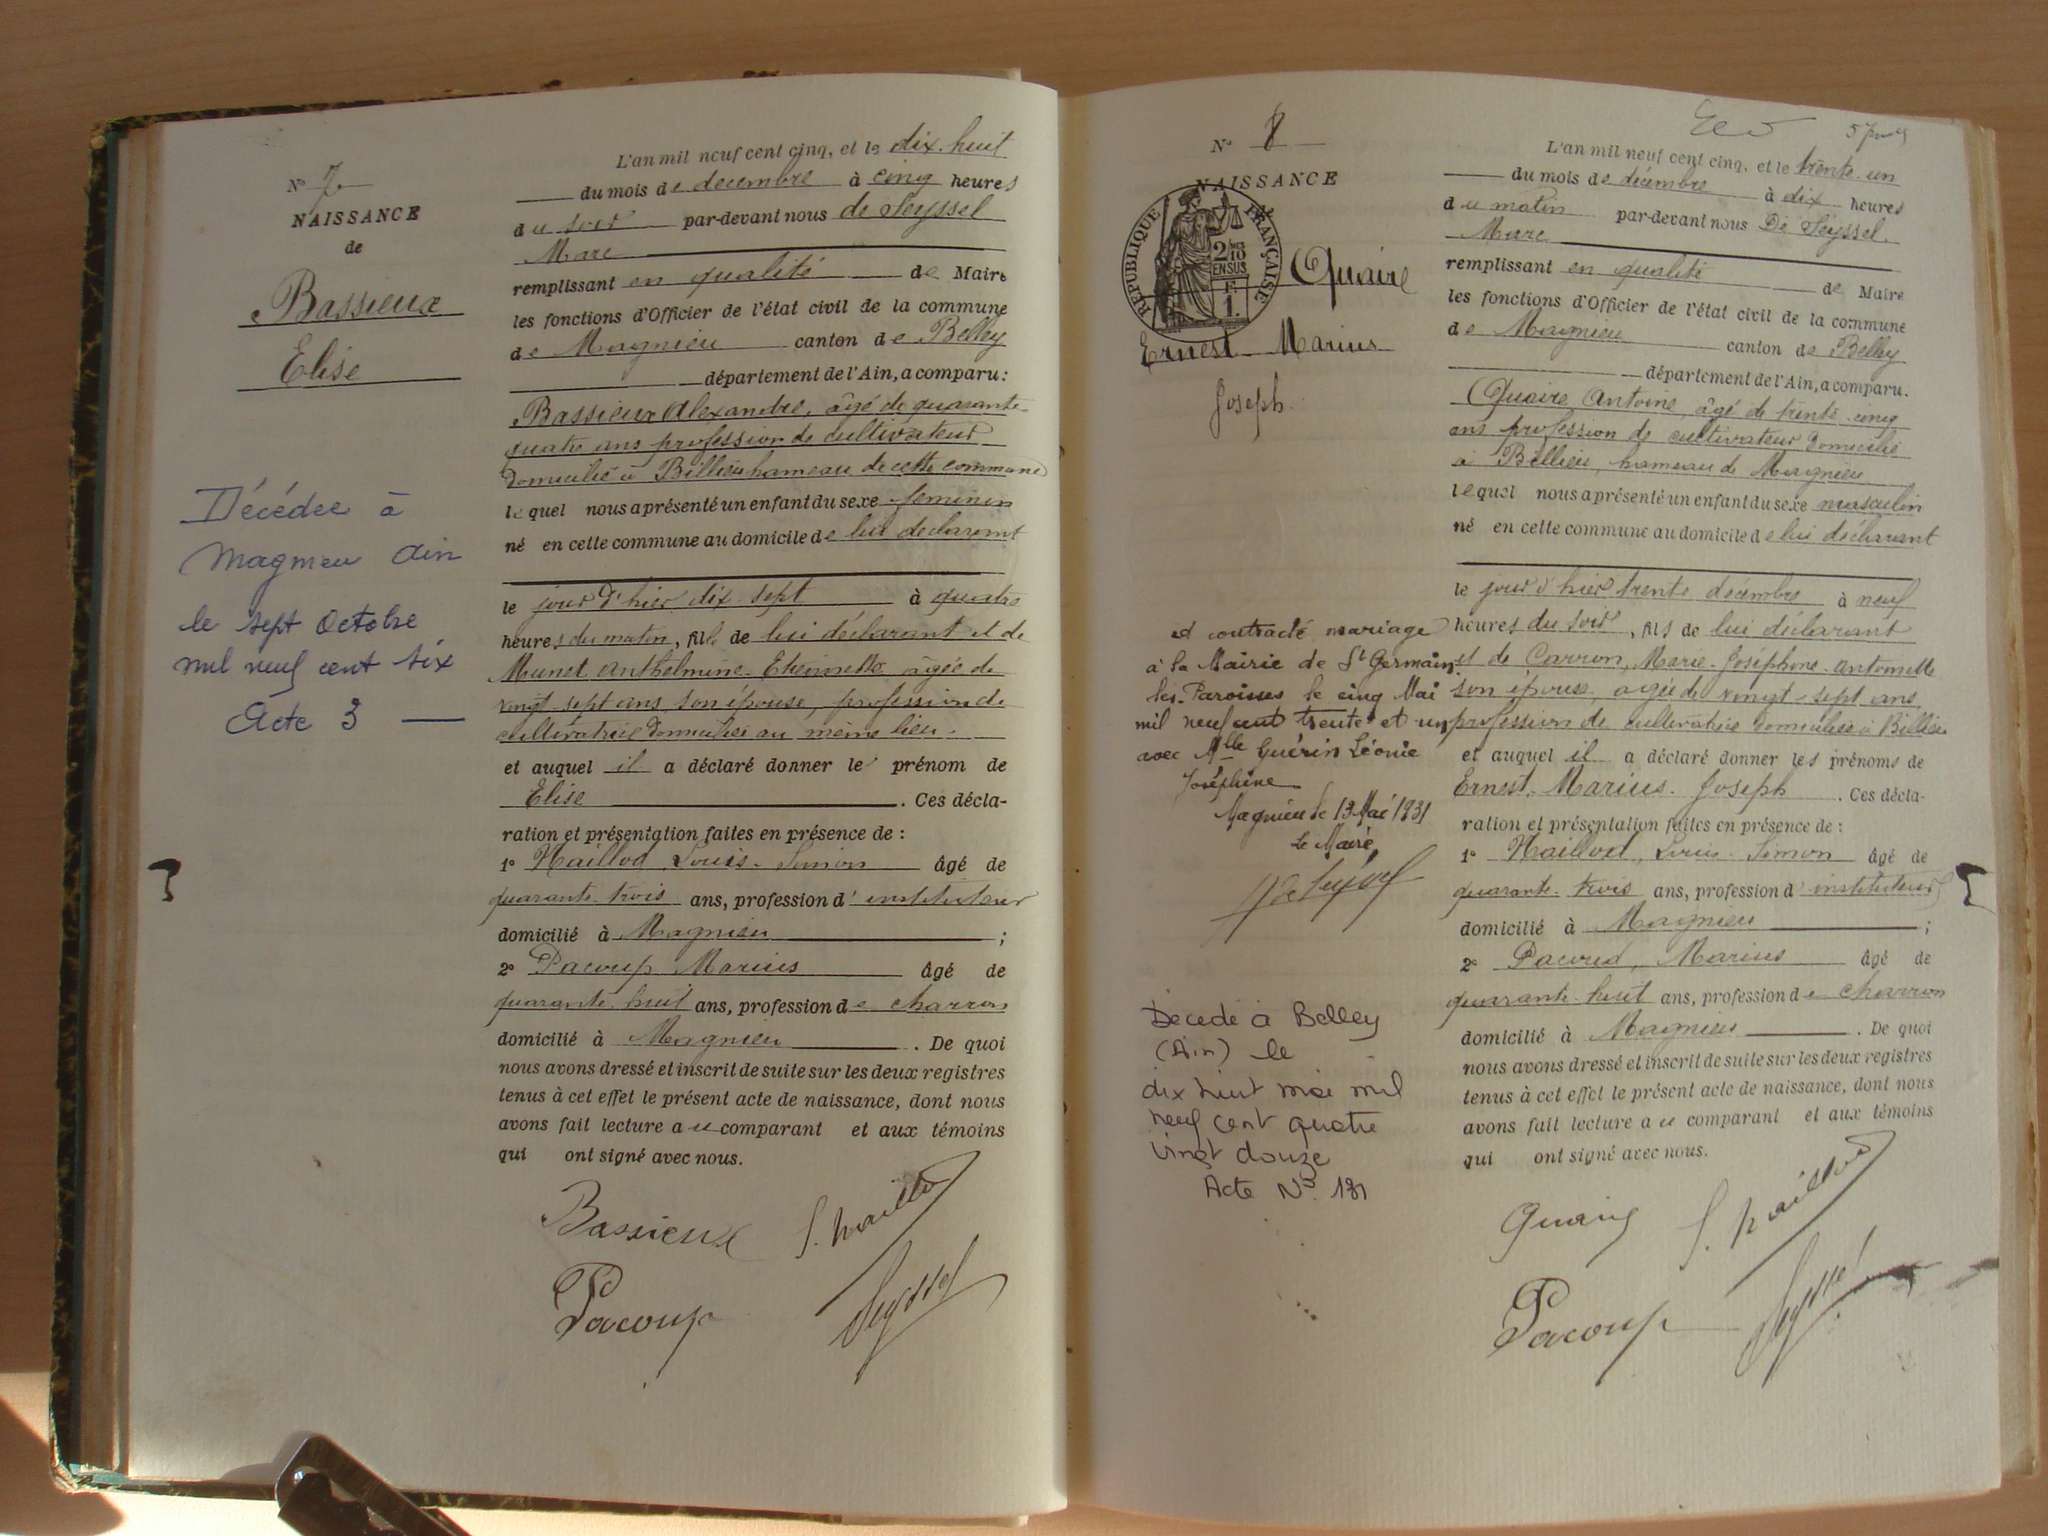 N° 7
NAISSANCE
de
Bassieux
Elise
Décédée à
Magnieu Ain
le sept Octobre
mil neuf cent six
Acte 3
L'an mil neuf cent cinq, et le dix-huit
du mois de decembre à cinq heures
du soir par-devant nous de Seyssel
Marc
remplissant en qualité de Maire
les fonctions d'Officier de l'état civil de la commune
de Magnieu canton de Belley
département de l'Ain, a comparu :
Bassieux Alexandre, âgé de quarante-
quatre ans profession de cultivateur
domicilié à Billieu hameau de cette commune
lequel nous a présenté un enfant du sexe feminin
né en cette commune au domicile de lui declarant
le jour d'hier dix-sept à quatre
heures du matin, fille de lui déclarant et de
Munet Anthelmine-Etiennette âgée de
vingt-sept ans son épouse, profession de
cultivatrice domiciliés au même lieu.
et auquel il a déclaré donner le prénom de
Elise . Ces décla-
ration et présentation faites en présence de :
1° Maillod Louis-Simon âgé de
quarante-trois ans, profession d'instituteur
domicilié à Magnieu ;
2° Pacoup Marius âgé de
quarante-huit ans, profession de charron
domicilié à Magnieu . De quoi
nous avons dressé et inscrit de suite sur les deux registres
tenus à cet effet le présent acte de naissance, dont nous
avons fait lecture au comparant et aux témoins
qui ont signé avec nous.
Bassieux
Pacoup Seyssel
N° 8
NAISSANCE
RÉPUBLIQUE FRANÇAISE
2/10
EN SUS
1.
Quaire
Ernest-Marius
Joseph.
a contracté mariage
à la Mairie de St Germain
les-Paroisses le cinq Mai
mil neuf cent trente et un
avec Mlle Guérin Léonie
Joséphine
Magnieu le 13 Mai 1931
Le Maire,
Décédé à Belley
(Ain) le
dix huit mai mil
neuf cent quatre
vingt douze
Acte N° 131
L'an mil neuf cent cinq, et le trente-un
du mois de décembre à dix heures
du matin par-devant nous De Seyssel,
Marc
remplissant en qualité de Maire
les fonctions d'Officier de l'état civil de la commune
de Magnieu canton de Belley
département de l'Ain, a comparu.
Quaire Antoine, âgé de trente-cinq
ans profession de cultivateur domicilié
à Billieu, hameau de Magnieu
lequel nous a présenté un enfant du sexe masculin
né en cette commune au domicile de lui déclarant
le jour d'hier trente décembre à neuf
heures du soir, fils de lui déclarant
et de Carron, Marie-Joséphine-Antoinette
son épouse, âgée de vingt-sept ans,
profession de cultivatrice domiciliée à Billieu
et auquel il a déclaré donner les prénoms de
Ernest-Marius-Joseph . Ces décla-
ration et présentation faites en présence de :
1° Maillod, Louis-Simon âgé de
quarante-trois ans, profession d'instituteur
domicilié à Magnieu ;
2° Marius âgé de
quarante-huit ans, profession de charron
domicilié à Magnieu . De quoi
nous avons dressé et inscrit de suite sur les deux registres
tenus à cet effet le présent acte de naissance, dont nous
avons fait lecture au comparant et aux témoins
qui ont signé avec nous.
Pacoup